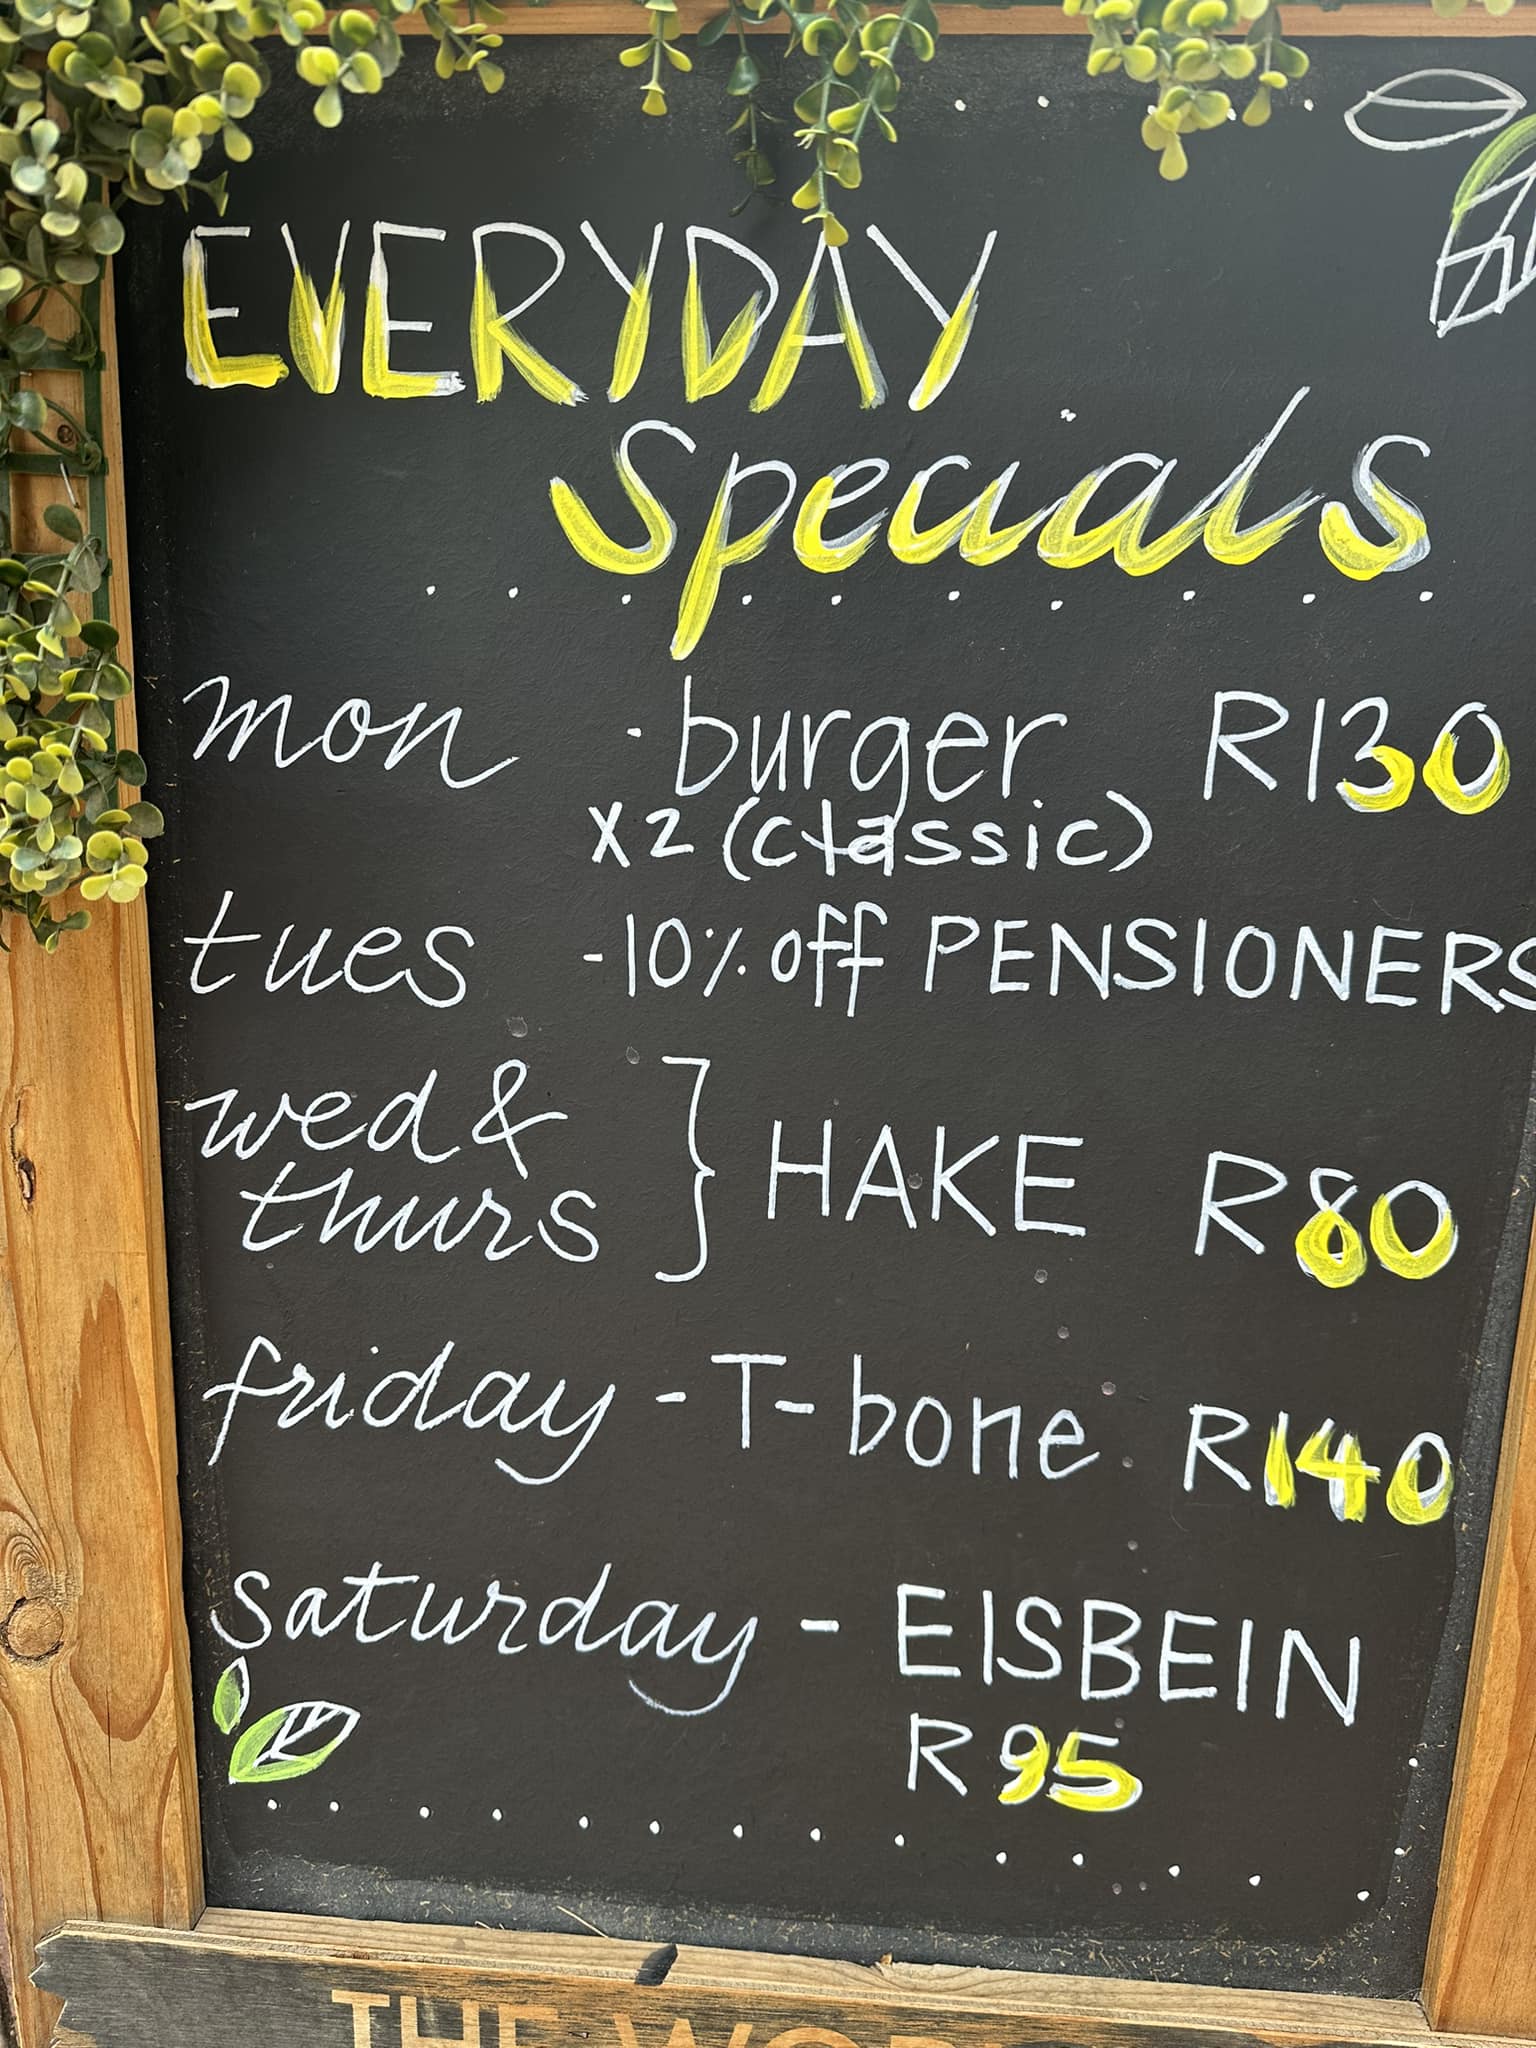 EVERYDAY
Specials
mon - burger R130
x2 (classic)
tues - 10% off PENSIONERS
wed &
thurs } HAKE R80
friday - T-bone R140
saturday - EISBEIN
R95
THE